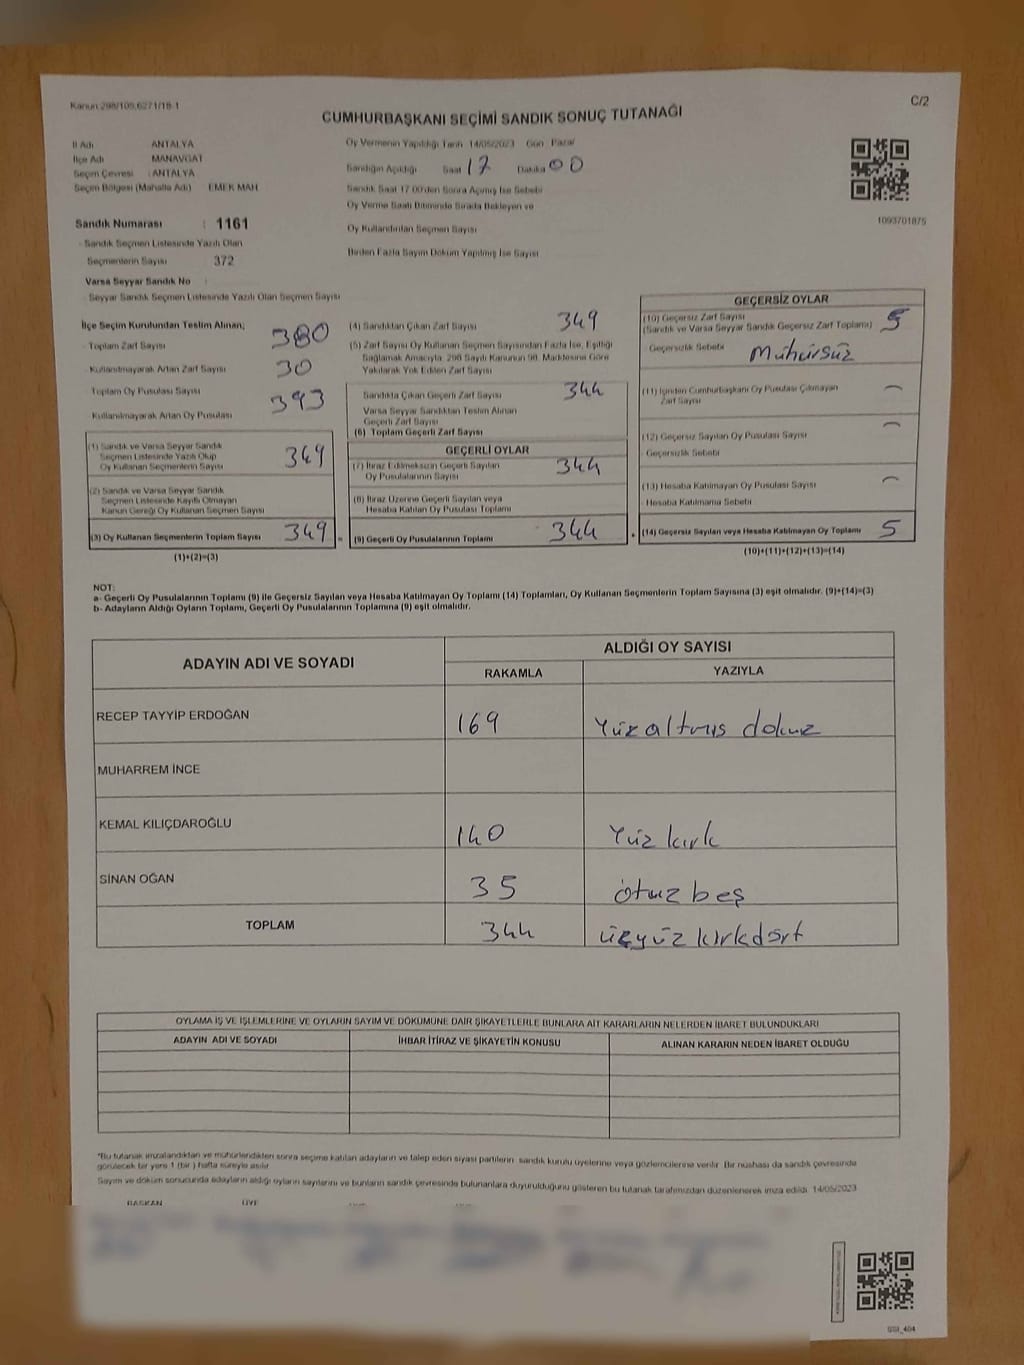 Kanun:298/105,6271/18-1
C/2
CUMHURBAŞKANI SEÇİMİ SANDIK SONUÇ TUTANAĞI
İl Adı ANTALYA
İlçe Adı MANAVGAT
Seçim Çevresi : ANTALYA
Seçim Bölgesi (Mahalle Adı) EMEK MAH
Sandık Numarası : 1161
Sandık Seçmen Listesinde Yazılı Olan
Seçmenlerin Sayısı 372
Varsa Seyyar Sandık No
Seyyar Sandık Seçmen Listesinde Yazılı Olan Seçmen Sayısı
Oy Vermenin Yapıldığı Tarih 14/05/2023 Gün Pazar
Sandığın Açıldığı Saat 17 Dakika 00
Sandık Saat 17.00'den Sonra Açımış İse Sebebi
Oy Verme Saati Bitiminde Sırada Bekleyen ve
Oy Kullandırılan Seçmen Sayısı
Birden Fazla Sayım Döküm Yapılmış İse Sayısı
1093701875
İlçe Seçim Kurulundan Teslim Alınan;
Toplam Zarf Sayısı 380
Kullanılmayarak Artan Zarf Sayısı 30
Toplam Oy Pusulası Sayısı 393
Kullanılmayarak Artan Oy Pusulası
(1) Sandık ve Varsa Seyyar Sandık
Seçmen Listesinde Yazılı Olup
Oy Kullanan Seçmenlerin Sayısı 349
(2) Sandık ve Varsa Seyyar Sandık
Seçmen Listesinde Kayıtlı Olmayan
Kanun Gereği Oy Kullanan Seçmen Sayısı
(3) Oy Kullanan Seçmenlerin Toplam Sayısı 349
(1)+(2)=(3)
(4) Sandıktan Çıkan Zarf Sayısı 349
(5) Zarf Sayısı Oy Kullanan Seçmen Sayısından Fazla İse, Eşitliği
Sağlamak Amacıyla, 298 Sayılı Kanunun 98. Maddesine Göre
Yakılarak Yok Edilen Zarf Sayısı
Sandıkta Çıkan Geçerli Zarf Sayısı 344
Varsa Seyyar Sandıktan Teslim Alınan
Geçerli Zarf Sayısı
(6) Toplam Geçerli Zarf Sayısı
GEÇERLİ OYLAR
(7) İtiraz Edilmeksizin Geçerli Sayılan
Oy Pusulalarının Sayısı 344
(8) İtiraz Üzerine Geçerli Sayılan veya
Hesaba Katılan Oy Pusulası Toplamı
(9) Geçerli Oy Pusulalarının Toplamı 344
GEÇERSİZ OYLAR
(10) Geçersiz Zarf Sayısı
(Sandık ve Varsa Seyyar Sandık Geçersiz Zarf Toplamı) 5
Geçersizlik Sebebi Mühürsüz
(11) İçinden Cumhurbaşkanı Oy Pusulası Çıkmayan
Zarf Sayısı
(12) Geçersiz Sayılan Oy Pusulası Sayısı
Geçersizlik Sebebi
(13) Hesaba Katılmayan Oy Pusulası Sayısı
Hesaba Katılmama Sebebi
(14) Geçersiz Sayılan veya Hesaba Katılmayan Oy Toplamı 5
(10)+(11)+(12)+(13)=(14)
NOT:
a- Geçerli Oy Pusulalarının Toplamı (9) ile Geçersiz Sayılan veya Hesaba Katılmayan Oy Toplamı (14) Toplamları, Oy Kullanan Seçmenlerin Toplam Sayısına (3) eşit olmalıdır. (9)+(14)=(3)
b- Adayların Aldığı Oyların Toplamı, Geçerli Oy Pusulalarının Toplamına (9) eşit olmalıdır.
ADAYIN ADI VE SOYADI
ALDIĞI OY SAYISI
RAKAMLA YAZIYLA
RECEP TAYYİP ERDOĞAN 169 Yüz altmış dokuz
MUHARREM İNCE
KEMAL KILIÇDAROĞLU 140 Yüz kırk
SİNAN OĞAN 35 otuz beş
TOPLAM 344 üçyüz kırkdört
OYLAMA İŞ VE İŞLEMLERİNE VE OYLARIN SAYIM VE DÖKÜMÜNE DAİR ŞİKAYETLERLE BUNLARA AİT KARARLARIN NELERDEN İBARET BULUNDUKLARI
ADAYIN ADI VE SOYADI İHBAR İTİRAZ VE ŞİKAYETİN KONUSU ALINAN KARARIN NEDEN İBARET OLDUĞU
*Bu tutanak imzalandıktan ve mühürlendikten sonra seçime katılan adayların ve talep eden siyasi partilerin sandık kurulu üyelerine veya gözlemcilerine verilir. Bir nüshası da sandık çevresinde
görülecek bir yere 1 (bir) hafta süreyle asılır.
Sayım ve döküm sonucunda adayların aldığı oyların sayılarını ve bunların sandık çevresinde bulunanlara duyurulduğunu gösteren bu tutanak tarafımızdan düzenlenerek imza edildi. 14/05/2023
BAŞKAN ÜYE